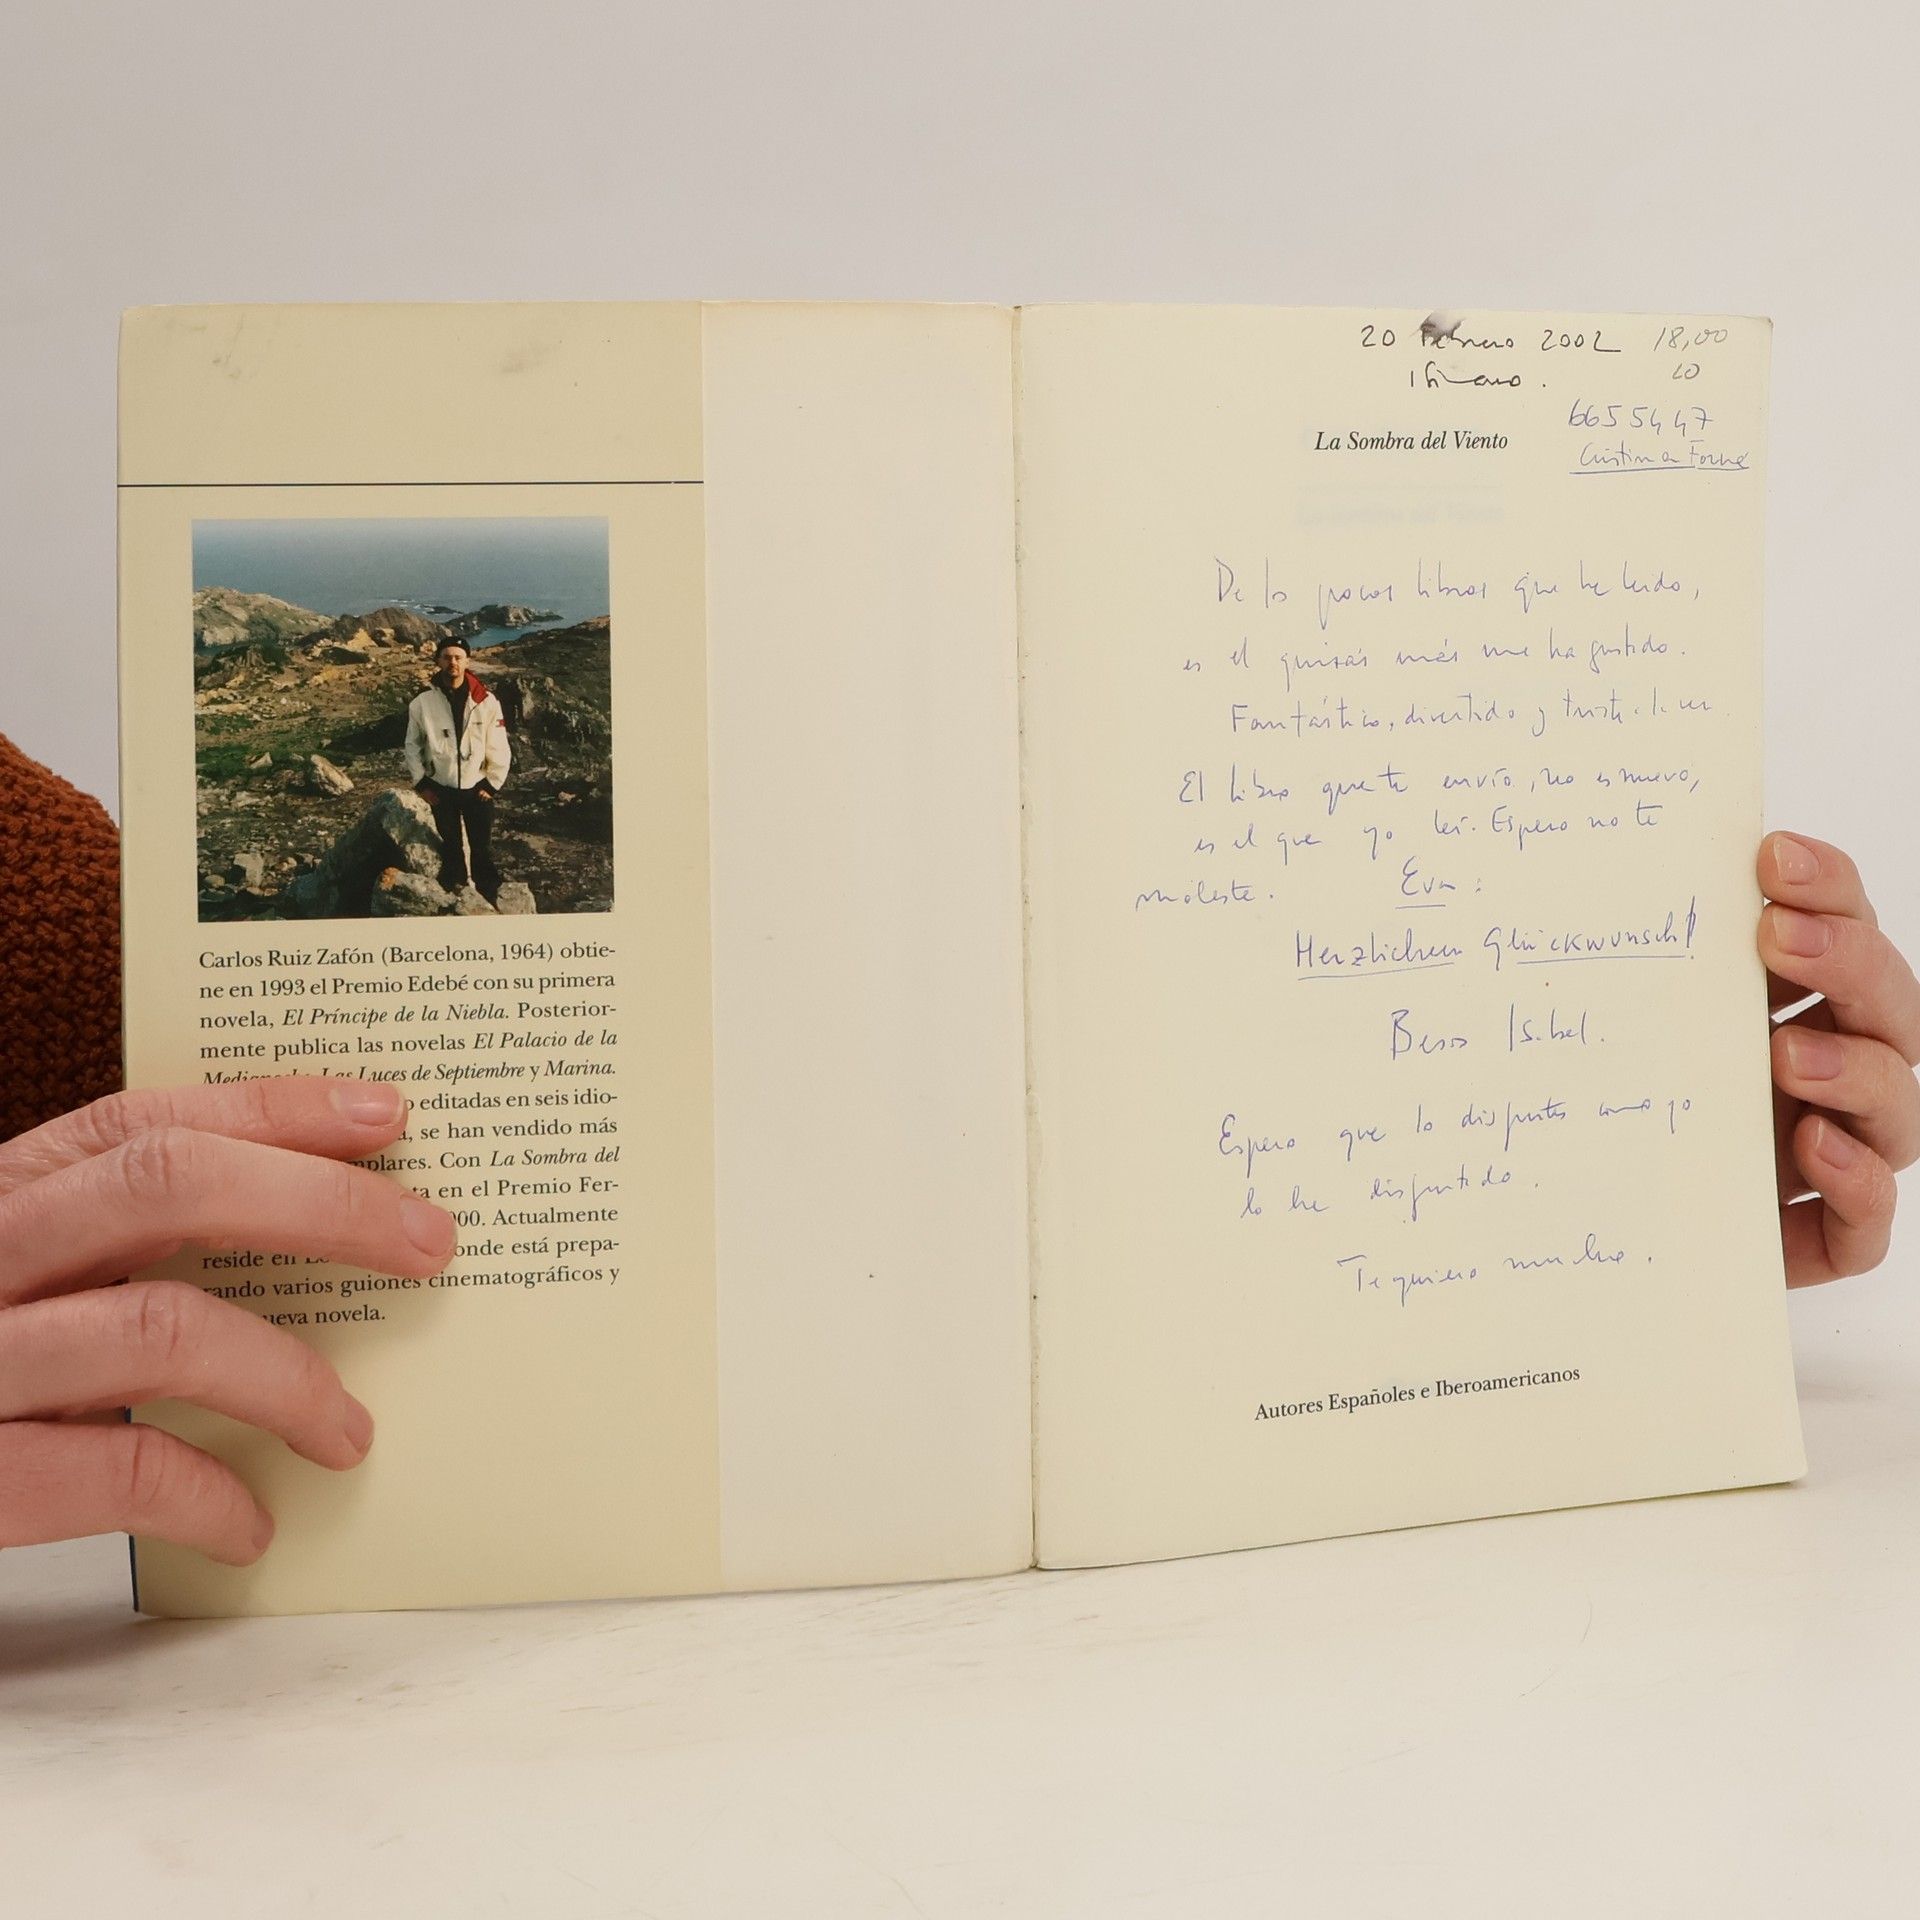 Carlos Ruiz Zafón (Barcelona, 1964) obtie-
ne en 1993 el Premio Edebé con su primera
novela, El Príncipe de la Niebla. Posterior-
mente publica las novelas El Palacio de la
Las Luces de Septiembre y Marina.
editadas en seis idio-
se han vendido más
Con La Sombra del
en el Premio Fer-
Actualmente
reside en está prepa-
rando varios guiones cinematográficos y
novela.
20 Febrero 2002 18,00
20
6655447
La Sombra del Viento
Cristina Forné
De los pocos libros que he leido,
es el quizás más me ha gustado.
Fantástico, divertido y triste a la vez.
El libro que te envío, no es nuevo,
es el que yo leí. Espero no te
moleste. Eva:
Herzlichen Glückwunsch!
Besos Isabel.
Espero que lo disfrutes como yo
lo he disfrutado.
Te quiero mucho.
Autores Españoles e Iberoamericanos